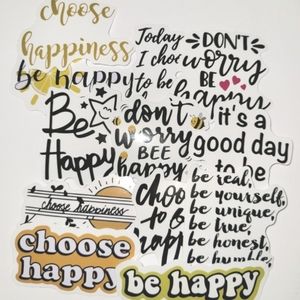 choose
happiness
be happy
Today
I choo
to be
happy
DON'T
worry
BE
happy
Be
Happy
don't
worry
BEE
happy
it's a
good day
to be
choose happiness
choo
to b
happ
be real,
be yourself,
be unique,
be true,
be honest,
be humble,
choose
happy
be happy